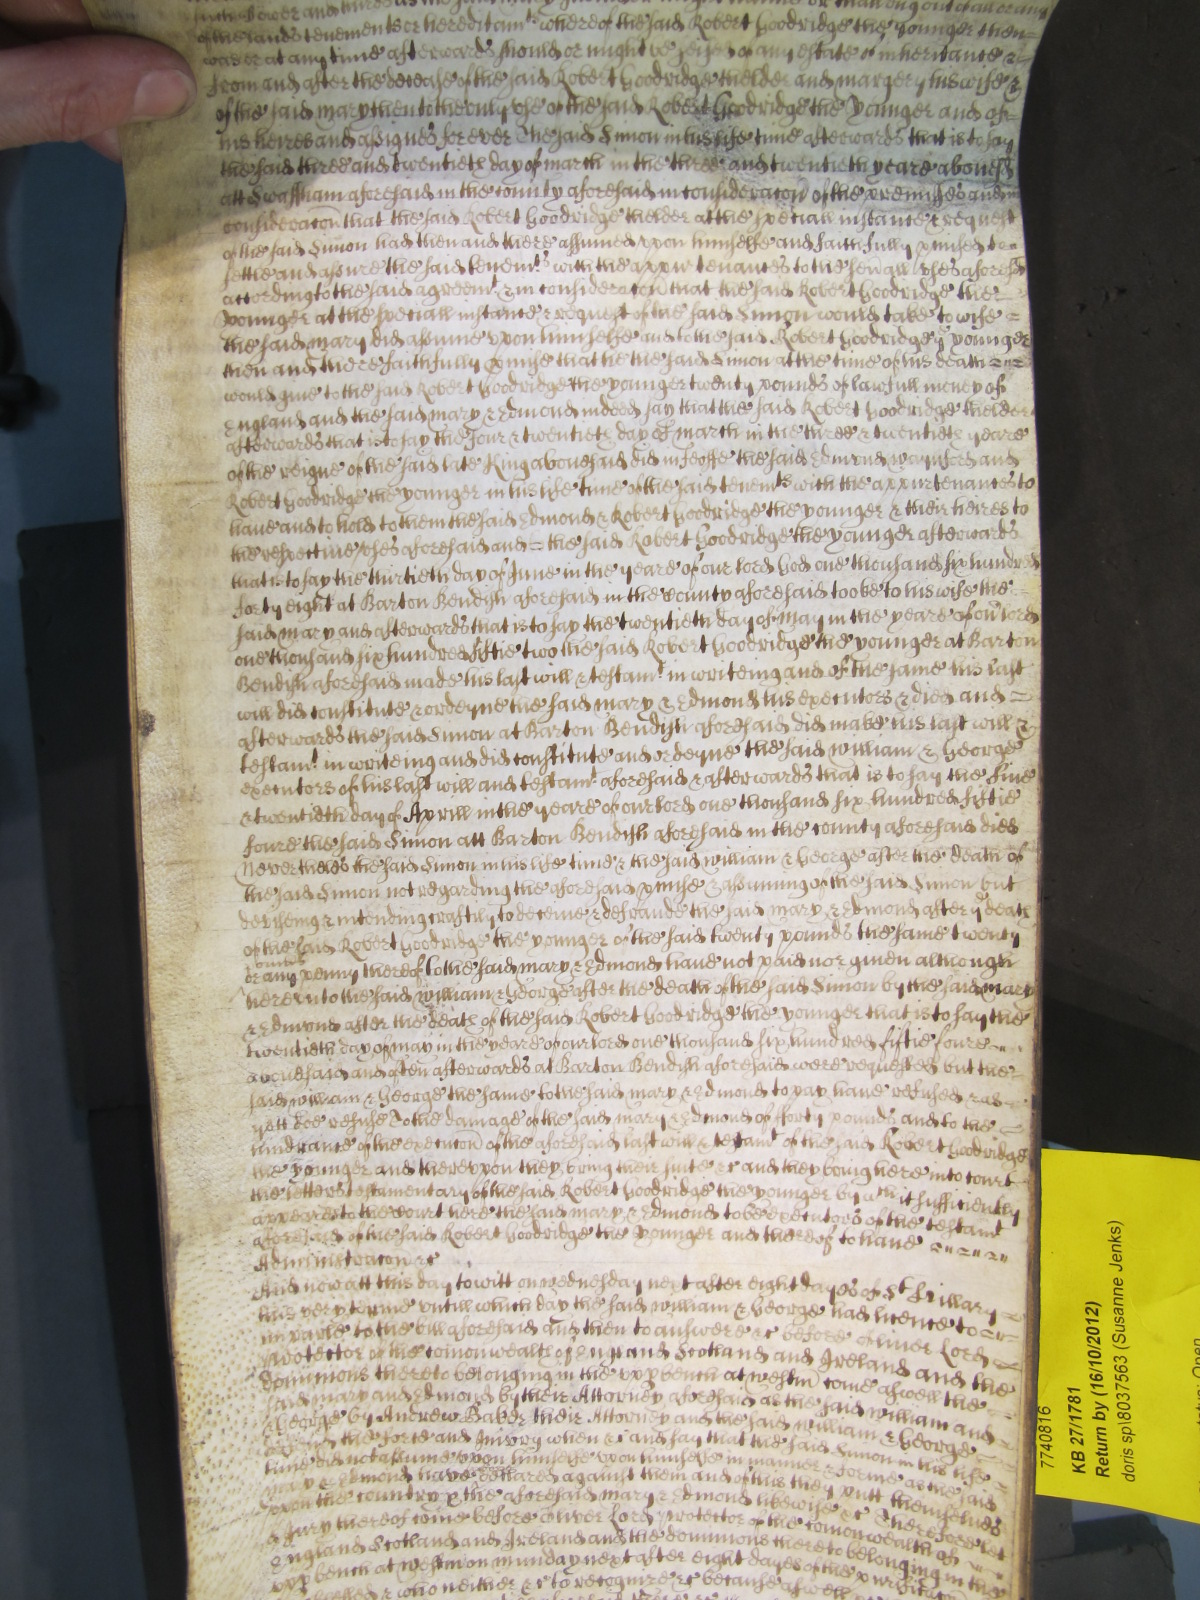 of the lands tenements or hereditamts whereof the said Robert Goodridge the younger then
was or at any time afterwards should or might be seised of any estate of inheritance &
from and after the decease of the said Robert Goodridge thelder and margery his wife &
of the said mary then to the only vse of the said Robert Goodridge the younger and of
his heires and assignes for ever The said Simon in his life time afterwards that is to say
the said three and twentieth day of march in the three and twentieth yeare abouesd
att Swaffham aforesaid in the county aforesaid in consideracon of the premisses and in
consideracon that the said Robert Goodridge thelder at the speciall instance & request
of the said Simon had then and there assumed vpon himselfe and faithfully pmised to
settle and assure the said tenemts with the appurtenances to the seuall vses aforesd
according to the said agreemt & in consideracon that the said Robert Goodridge the
younger at the speciall instance & request of the said Simon would take to wife
the said mary did assume vpon himselfe and to the said Robert Goodridge ye younger
then and there faithfully pmise that he the said Simon at the time of his death
would giue to the said Robert Goodridge the younger twenty pounds of lawfull money of
England and the said mary & Edmond indeed say that the said Robert Goodridge thelder
afterwards that is to say the four & twentieth day of march in the three & twentieth yeare
of the reigne of the said late King abouesaid did infeoffe the said Edmund and
Robert Goodridge the younger in his life time of the said tenemts with the appurtenances to
haue and to hold to them the said Edmond & Robert Goodridge the younger & their heires to
the respectiue vses aforesaid and = the said Robert Goodridge the younger afterwards
that is to say the thirtieth day of June in the yeare of our lord God one thousand six hundred
forty eight at Barton Bendish aforesaid in the county aforesaid tooke to his wife the
said mary and afterwards that is to say the twentieth day of may in the yeare of our lord
one thousand six hundred fiftie two the said Robert Goodridge the younger at Barton
Bendish aforesaid made his last will & testamt in writeing and of the same his last
will did constitute & ordeyne the said mary & Edmond his executors & died and =
afterwards the said Simon at Barton Bendish aforesaid did make his last will &
testamt in writeing and did constitute and ordeyne the said William & George
executors of his last will and testamt aforesaid & afterwards that is to say the fiue
& twentieth day of Aprill in the yeare of our lord one thousand six hundred fiftie
foure the said Simon att Barton Bendish aforesaid in the county aforesaid died
Neverthelss the said Simon in his life time & the said William & George after the death of
the said Simon not regarding the aforesaid pmise & assuming of the said Simon but
deviseing & intending craftily to deceiue & defraude the said mary & Edmond after ye death
of the said Robert Goodridge the younger of the said twenty pounds the same twenty
pounds
or any penny thereof to the said mary & Edmond haue not paid nor giuen although
herevnto the said William & George after the death of the said Simon by the said mary
& Edmond after the death of the said Robert Goodridge the younger that is to say the
twentieth day of may in the yeare of our lord one thousand six hundred fiftie foure
abouesaid and often afterwards at Barton Bendish aforesaid were requested but the
said William & George the same to the said mary & Edmond to pay haue refused & as
yett doe refuse To the damage of the said mary & Edmond of forty pounds and to the
hindrance of the execucon of the aforesaid last will & testamt of the said Robert Goodridge
the younger and therevpon they bring their suite &c and they bring here into court
the letters testamentary of the said Robert Goodridge the younger by wch it sufficiently
appeares to the court here the said mary & Edmond to be executors of the testamt
aforesaid of the said Robert Goodridge the younger and thereof to haue
Administracon &c
And now att this day to witt on wednesday next after eight dayes of St Hillary
this very terme vntill which day the said William & George had licence to
imparle to the bill aforesaid and then to answere &c before Oliver Lord
Protector of the comonwealth of England Scotland and Ireland and the
dominions thereto belonging in the vpp bench at westm come aswell the
said mary and Edmond by their Attorney aforesaid as the said William and
George by Andrew Baker their Attorney and the said William & George
the force and Iniury when &c and say that the said Simon in his life
time did not assume vpon himselfe in manner & forme as the said
mary & Edmond haue declared against them and of this they putt themselues
vpon the country & the aforesaid mary & Edmond likewise &c Therefore let
a Jury thereof come before Oliver Lord Protector of the comonwealth of
England Scotland and Ireland and the dominions thereto belonging in the
vpp bench at westm on munday next after eight dayes of the purificacon
& who neither &c to recognize &c because aswell
7740816
KB 27/1781
Return by (16/10/2012)
doris sp\8037563 (Susanne Jenks)